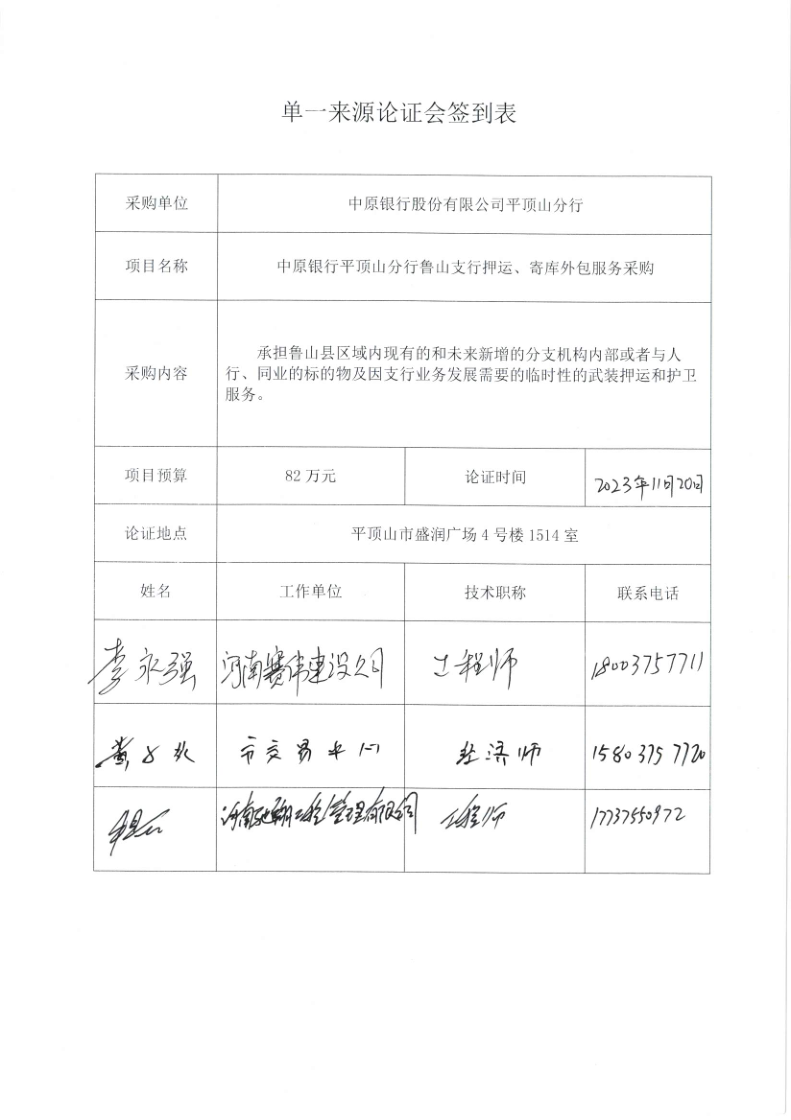 单一来源论证会签到表
采购单位 中原银行股份有限公司平顶山分行
项目名称 中原银行平顶山分行鲁山支行押运、寄库外包服务采购
采购内容
承担鲁山县区域内现有的和未来新增的分支机构内部或者与人
行、同业的标的物及因支行业务发展需要的临时性的武装押运和护卫
服务。
项目预算 82 万元 论证时间 2023年11月20日
论证地点 平顶山市盛润广场 4 号楼 1514 室
姓名 工作单位 技术职称 联系电话
李永强 河南赛伟建设公司 工程师 18003757711
市交易中心 经济师 15803757720
工程师 17737550972